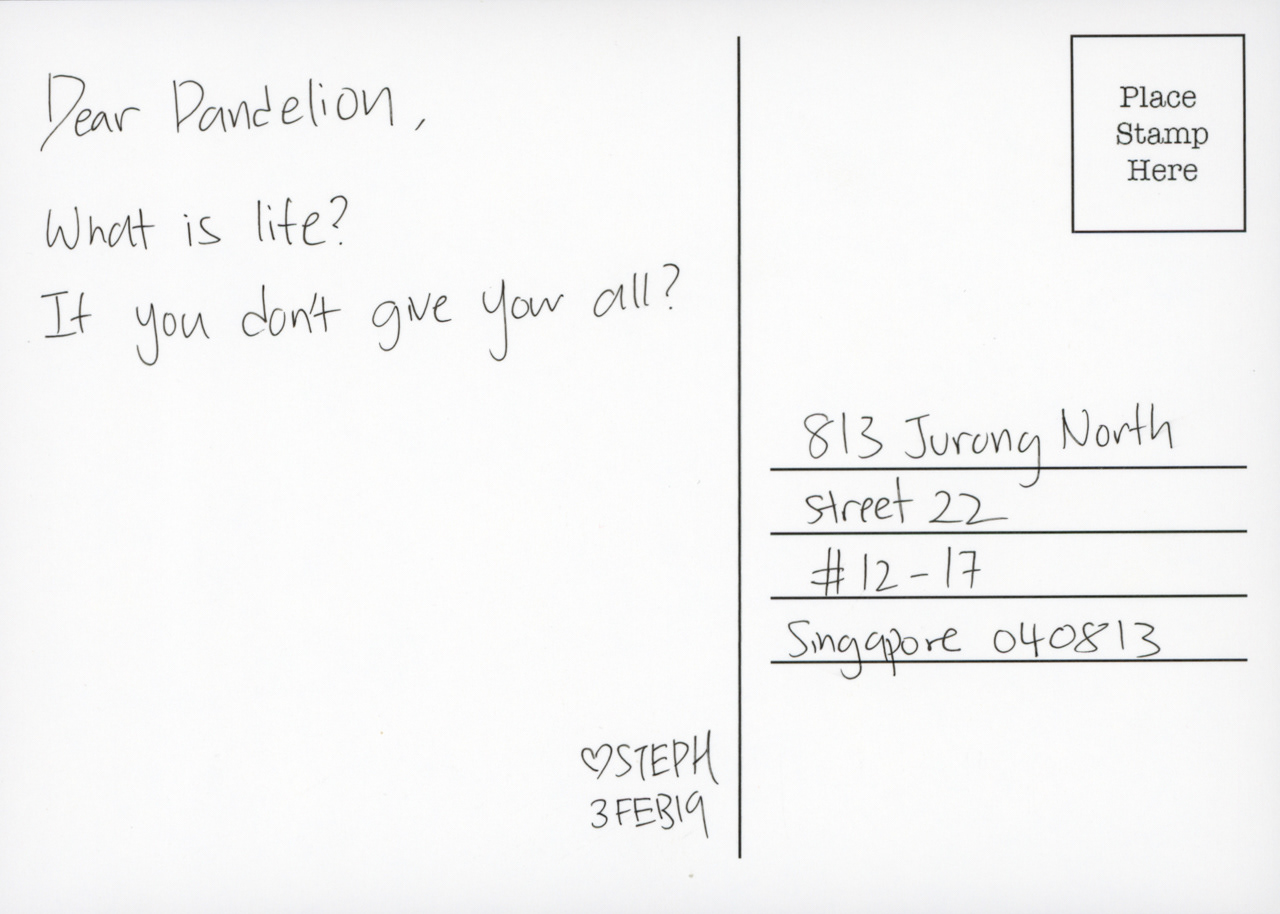 Dear Dandelion,
What is life?
If you don't give your all?
♡STEPH
3FEB19
Place
Stamp
Here
813 Jurong North
street 22
#12-17
Singapore 040813